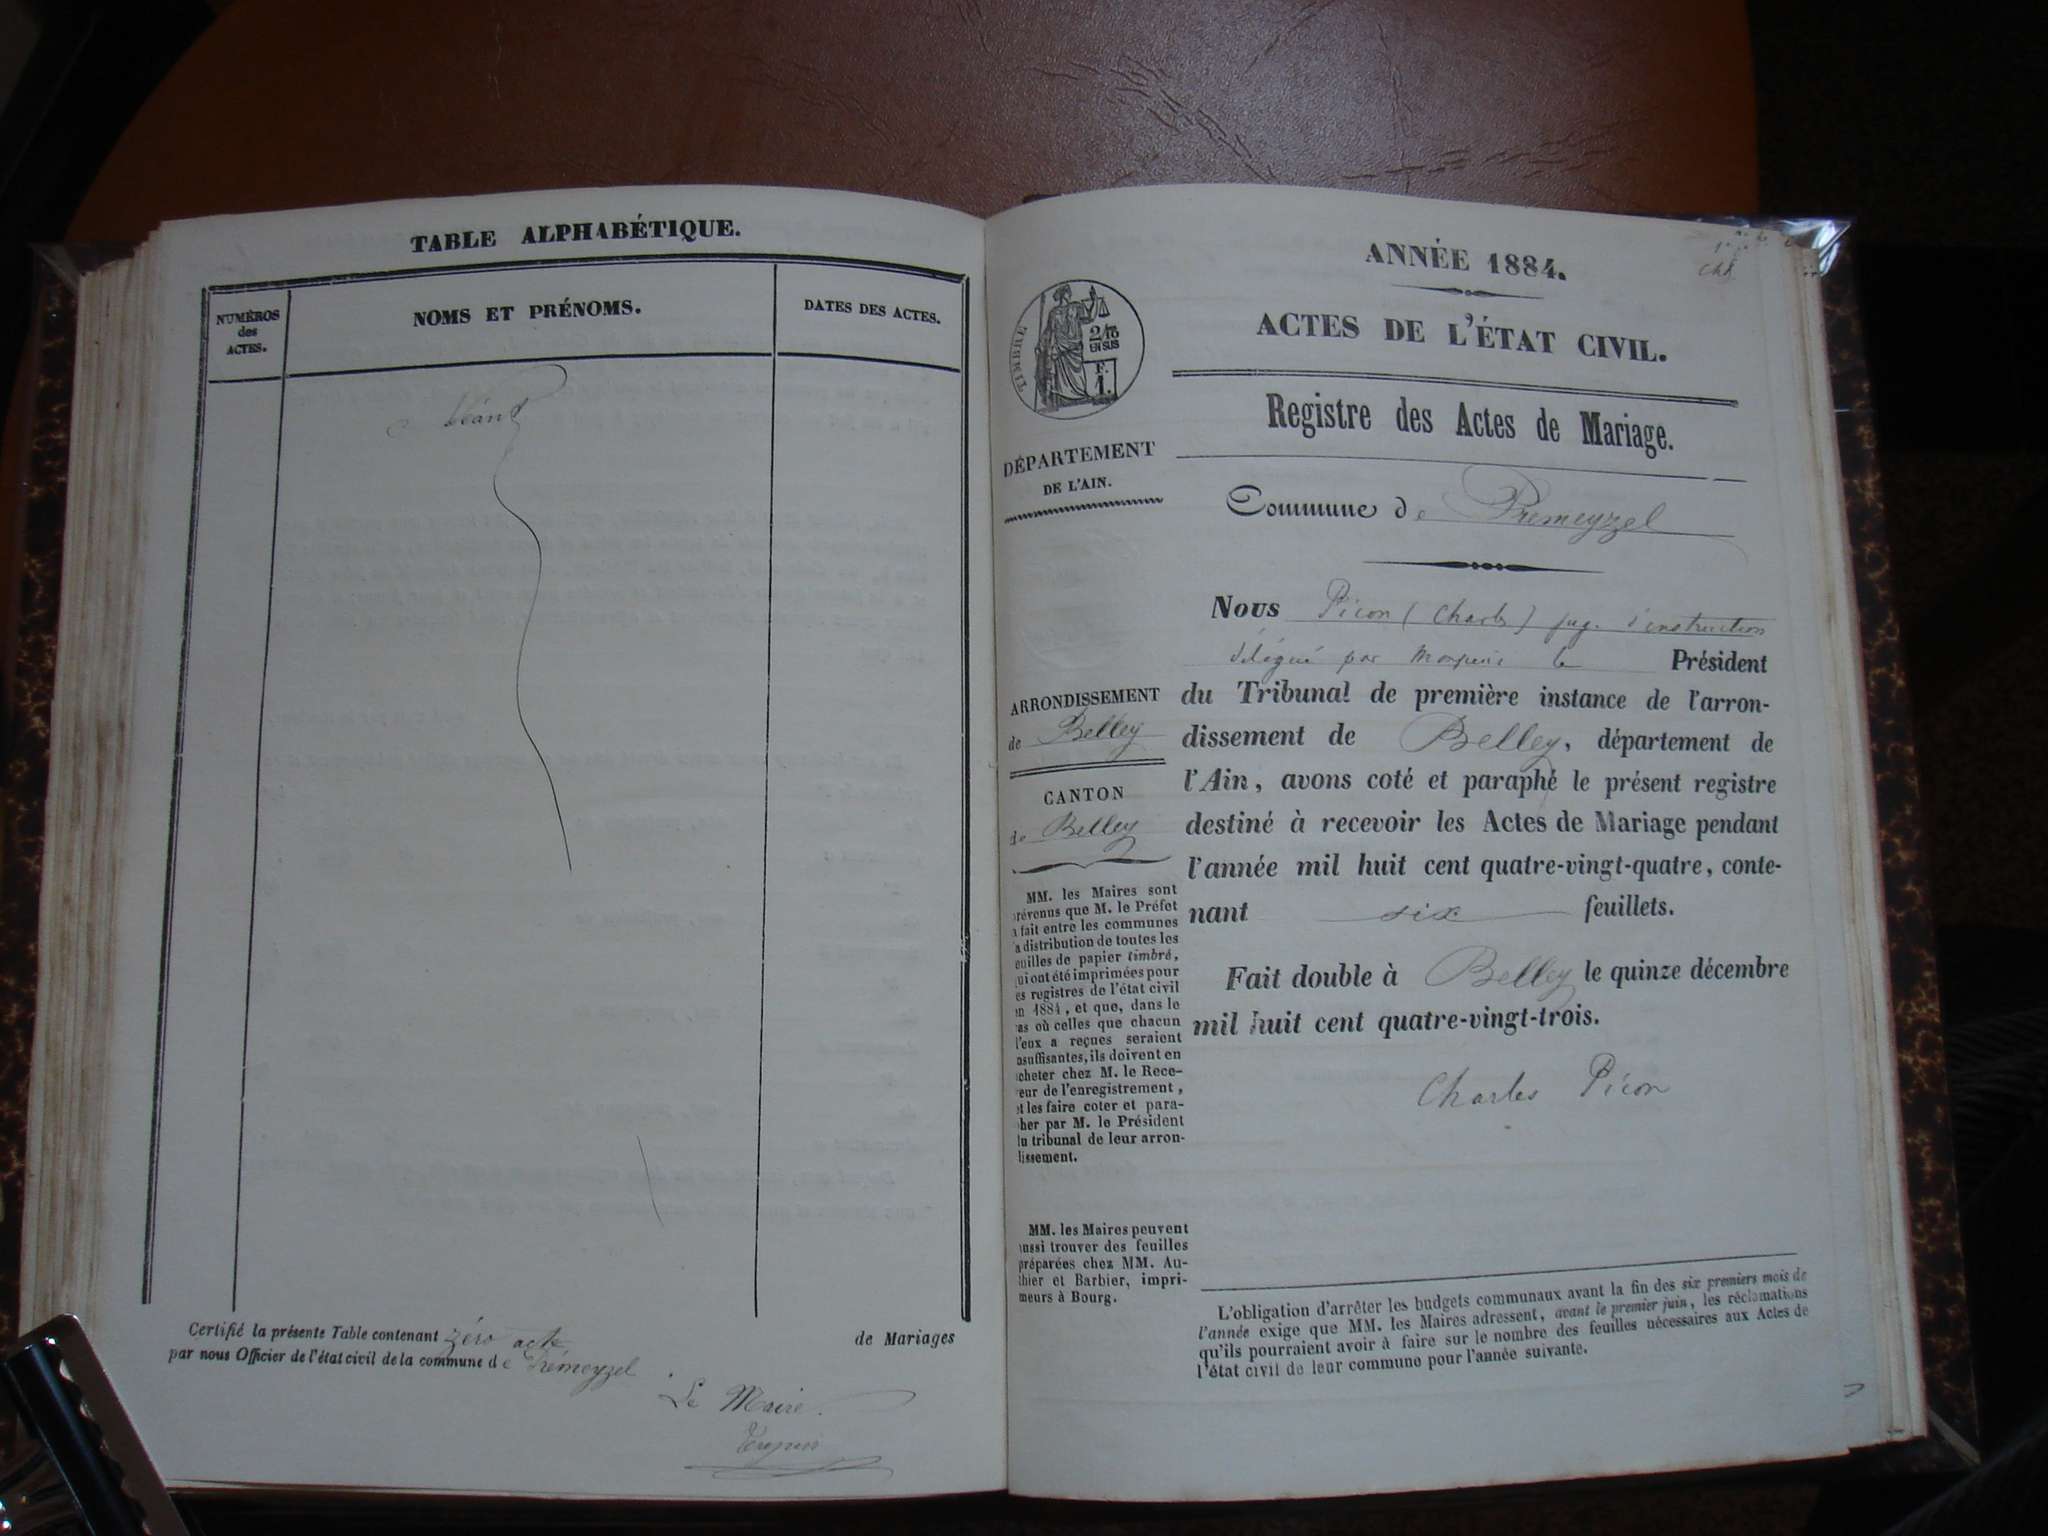 TABLE ALPHABÉTIQUE.
NUMÉROS
des
ACTES.
NOMS ET PRÉNOMS.
DATES DES ACTES.
Néant
Certifié la présente Table contenant zéro acte de Mariages
par nous Officier de l'état civil de la commune de Prémeyzel
Le Maire
ANNÉE 1884.
ACTES DE L'ÉTAT CIVIL.
TIMBRE
2/10
EN SUS
F.
1.
Registre des Actes de Mariage.
DÉPARTEMENT
DE L'AIN.
Commune de Premeyzel
Nous Picon (Charles) juge d'instruction
délégué par Monsieur le Président
du Tribunal de première instance de l'arron-
dissement de Belley, département de
l'Ain, avons coté et paraphé le présent registre
destiné à recevoir les Actes de Mariage pendant
l'année mil huit cent quatre-vingt-quatre, conte-
nant six feuillets.
Fait double à Belley le quinze décembre
mil huit cent quatre-vingt-trois.
Charles Picon
ARRONDISSEMENT
de Belley
CANTON
de Belley
MM. les Maires sont
révenus que M. le Préfet
a fait entre les communes
a distribution de toutes les
euilles de papier timbré,
ui ont été imprimées pour
es registres de l'état civil
n 1884, et que, dans le
as où celles que chacun
l'eux a reçues seraient
nsuffisantes, ils doivent en
cheter chez M. le Rece-
eur de l'enregistrement,
et les faire coter et para-
her par M. le Président
u tribunal de leur arron-
lissement.
MM. les Maires peuvent
ussi trouver des feuilles
préparées chez MM. Au-
thier et Barbier, impri-
meurs à Bourg.
L'obligation d'arrêter les budgets communaux avant la fin des six premiers mois de
l'année exige que MM. les Maires adressent, avant le premier juin, les réclamations
qu'ils pourraient avoir à faire sur le nombre des feuilles nécessaires aux Actes de
l'état civil de leur commune pour l'année suivante.